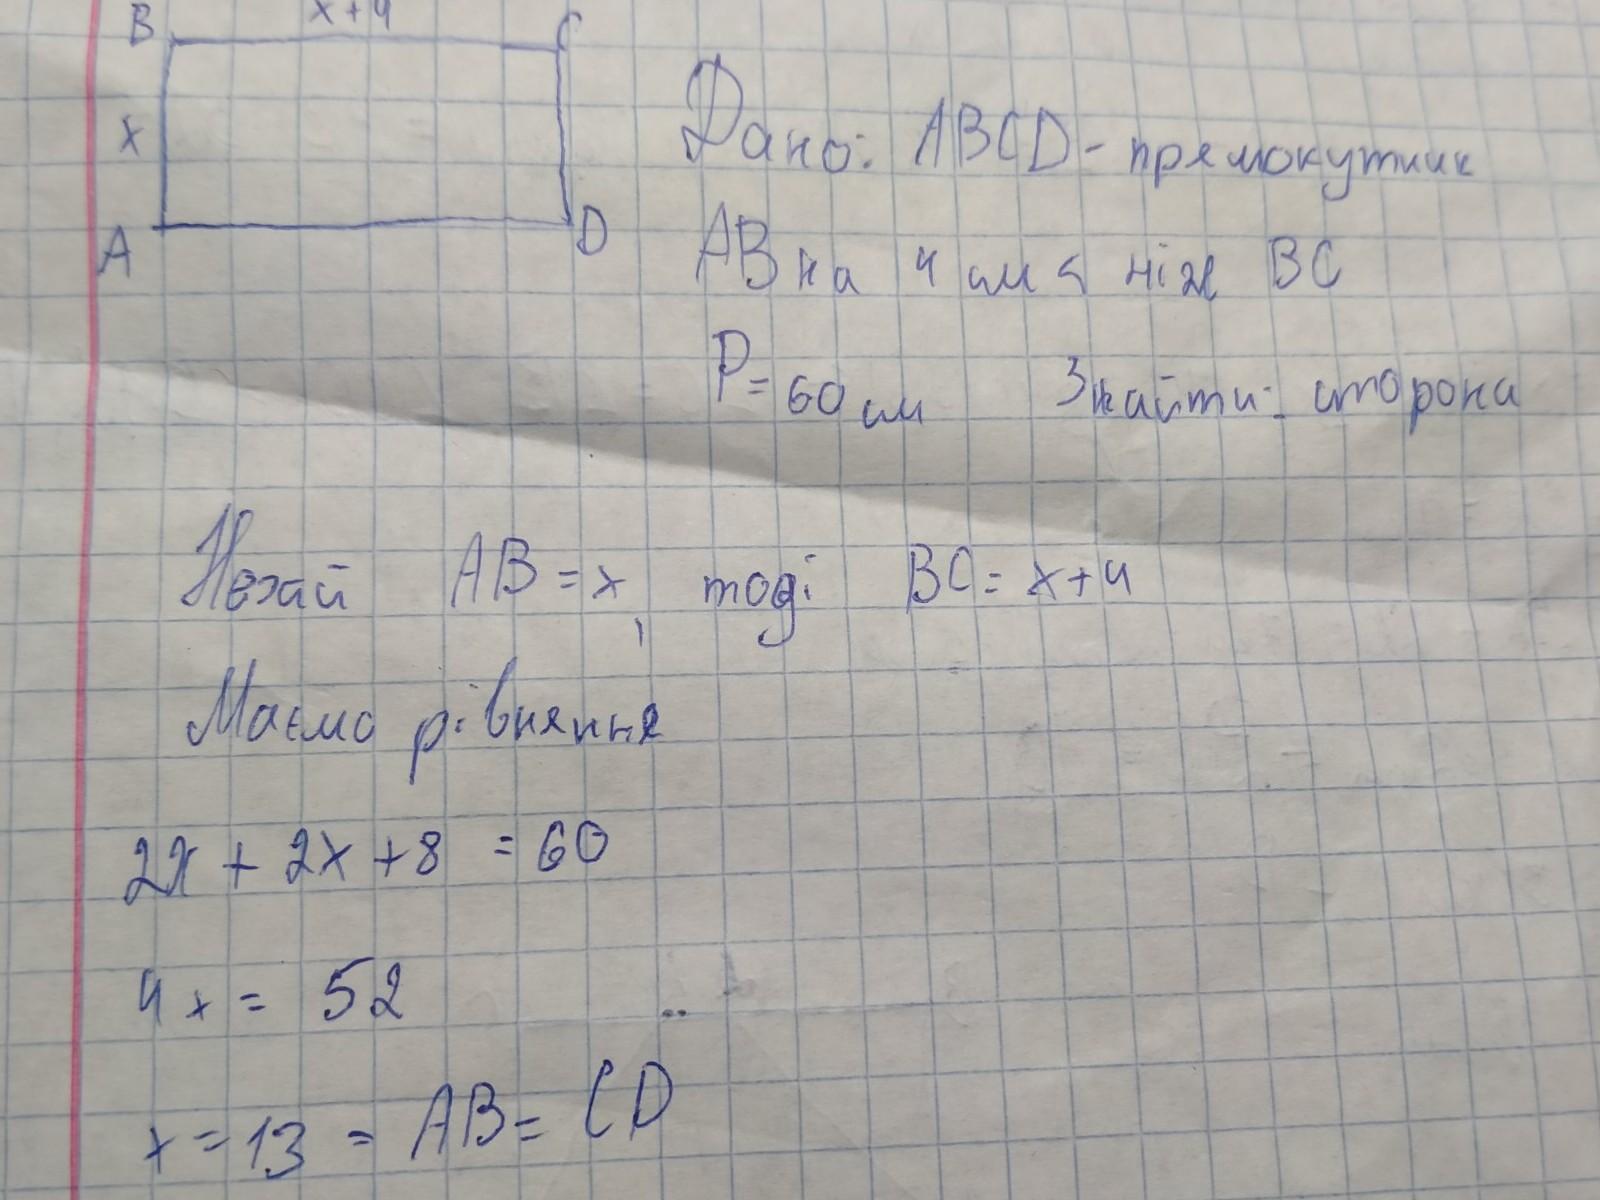 B x+4 C
x
A D
Дано: ABCD - прямокутник
AB на 4 см < ніж BC
P = 60 см Знайти: сторони
Нехай AB = x, тоді BC = x+4
Маємо рівняння
2x + 2x + 8 = 60
4x = 52
x = 13 = AB = CD